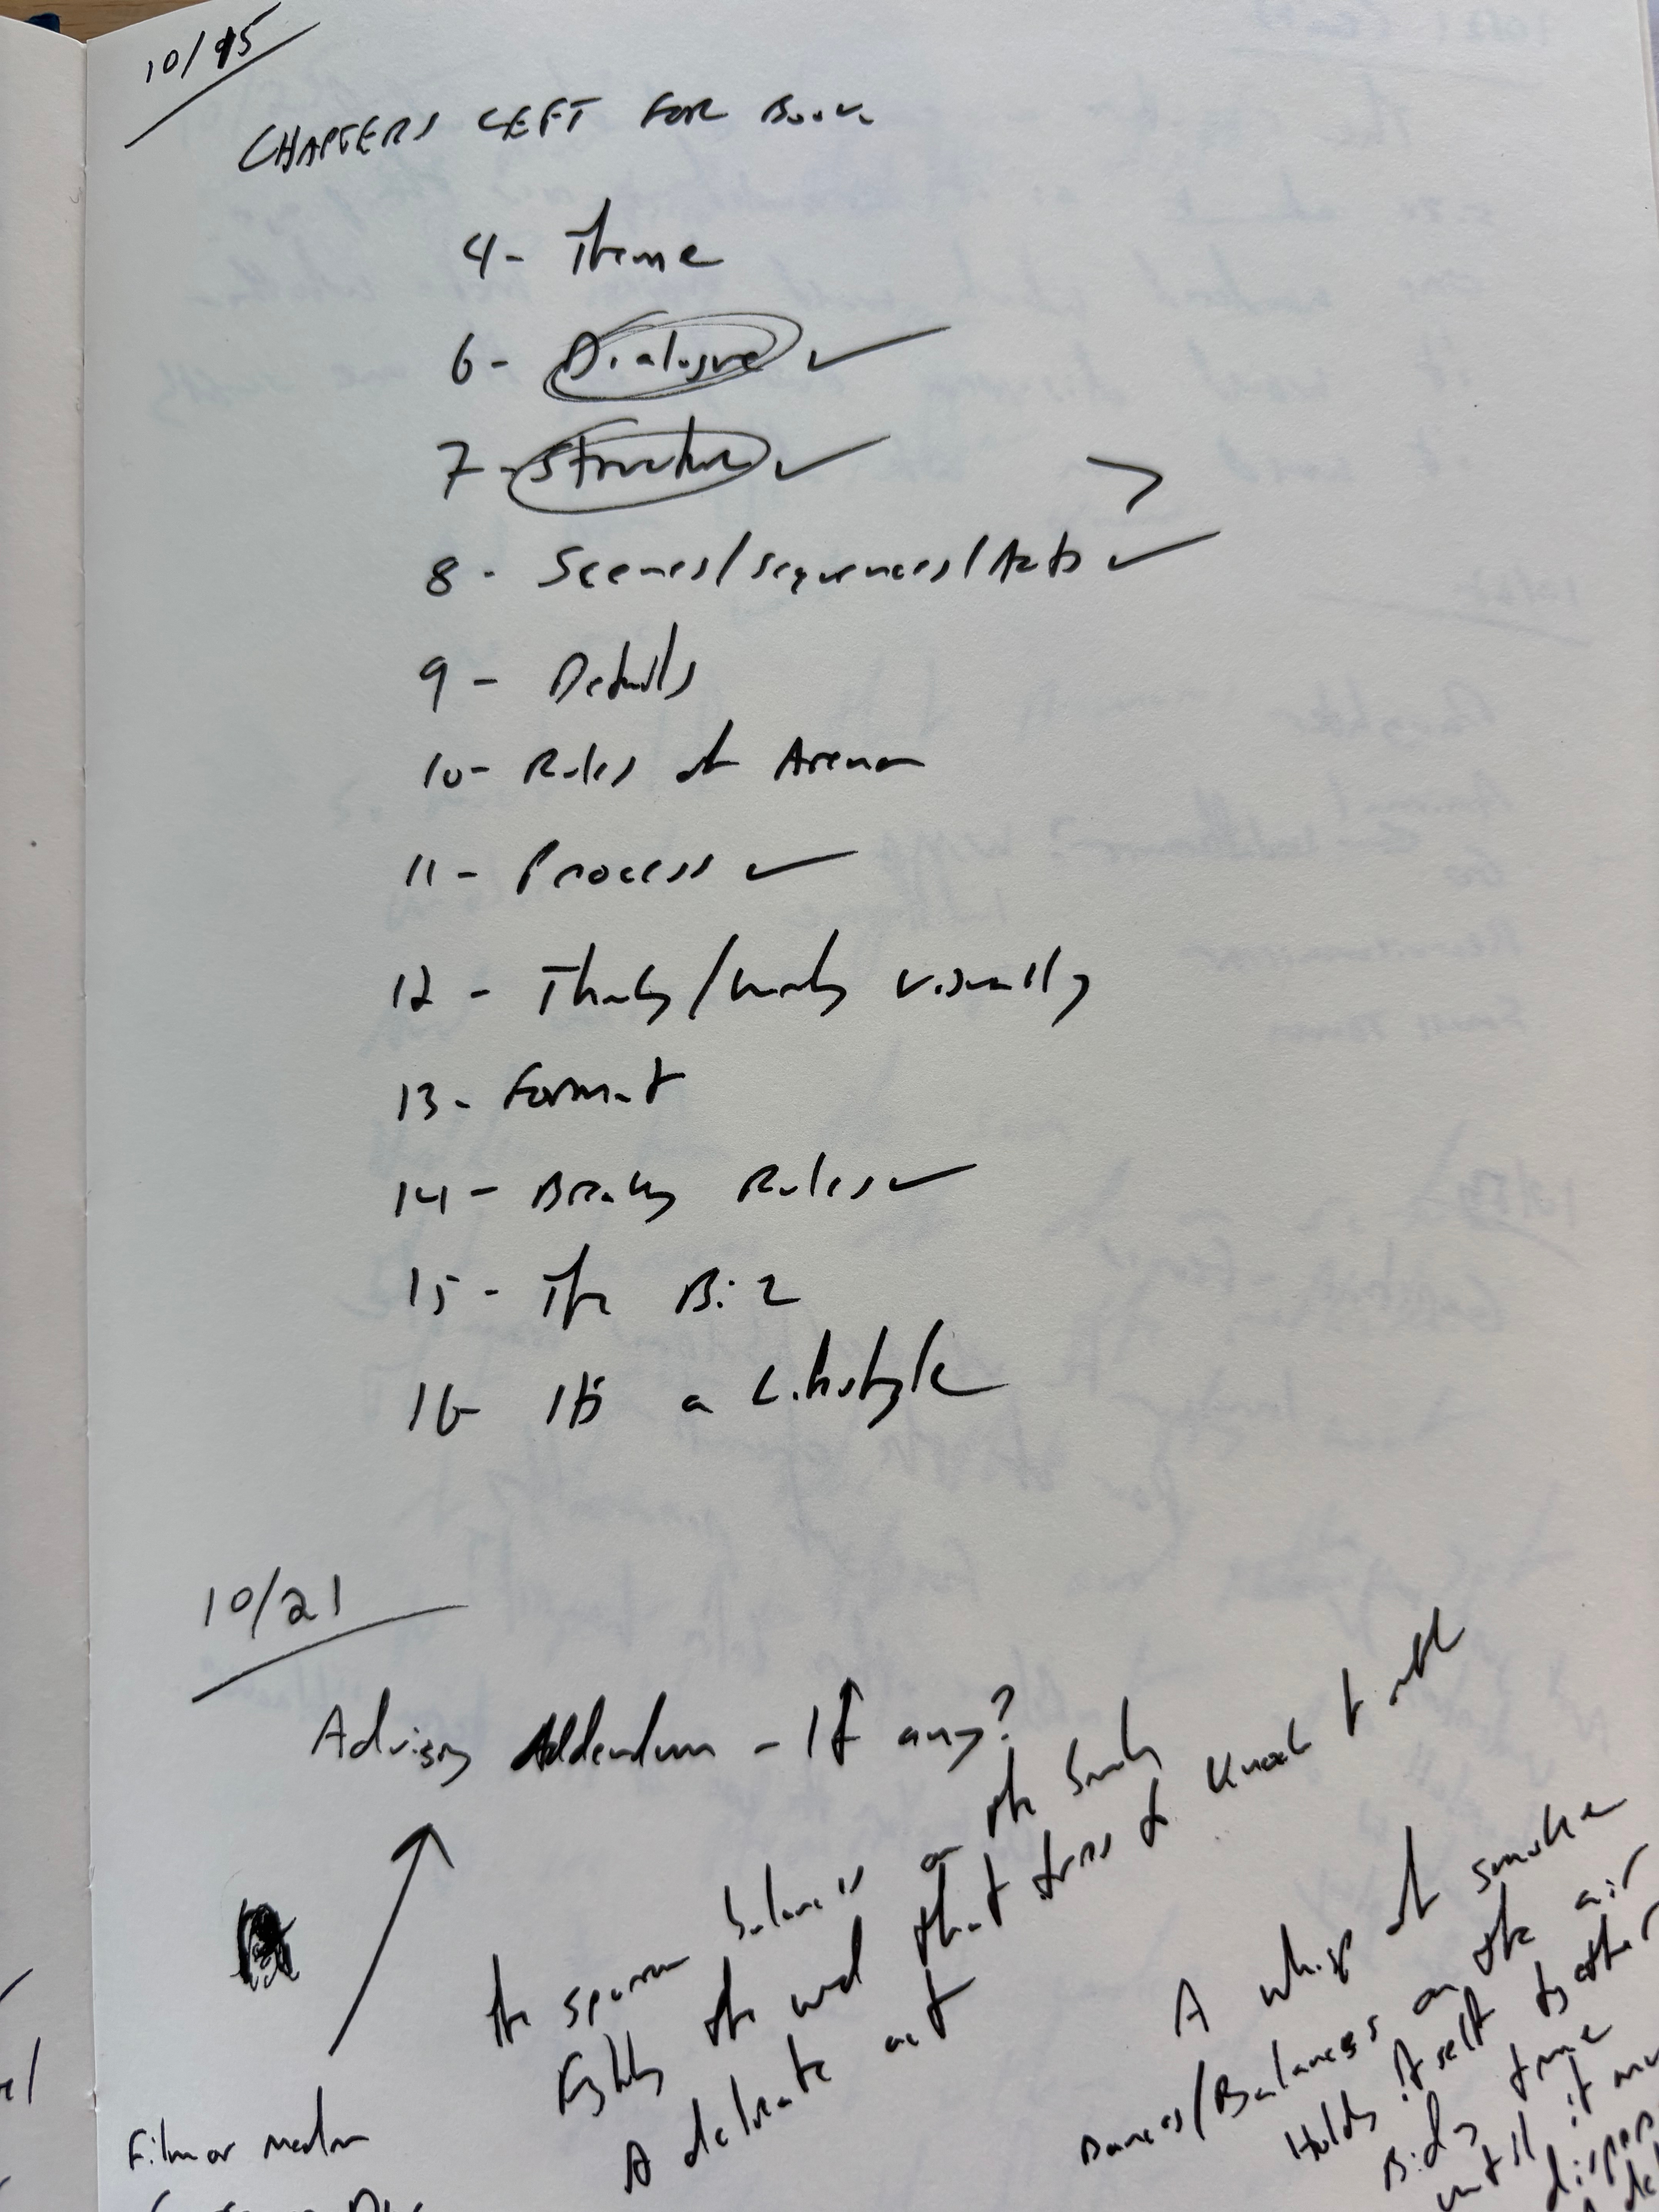 10/15
CHAPTERS LEFT FOR BOOK
4- Theme
6- Dialogue ✓
7- Structure ✓
>
8- Scenes/sequences/Acts ✓
9- Details
10- Rules of Arena
11- Process ✓
12- Thinking/writing visually
13- Format
14- Breaking Rules ✓
15- The Biz
16- It's a Lifestyle
10/21
Advisory Addendum - If any?
the sparrow balances on the
Fights the wind that tries to knock it off
A delicate act
A whisp of smoke
Dances/Balances on the air
Holds itself together
Biding time
until it
Film or media